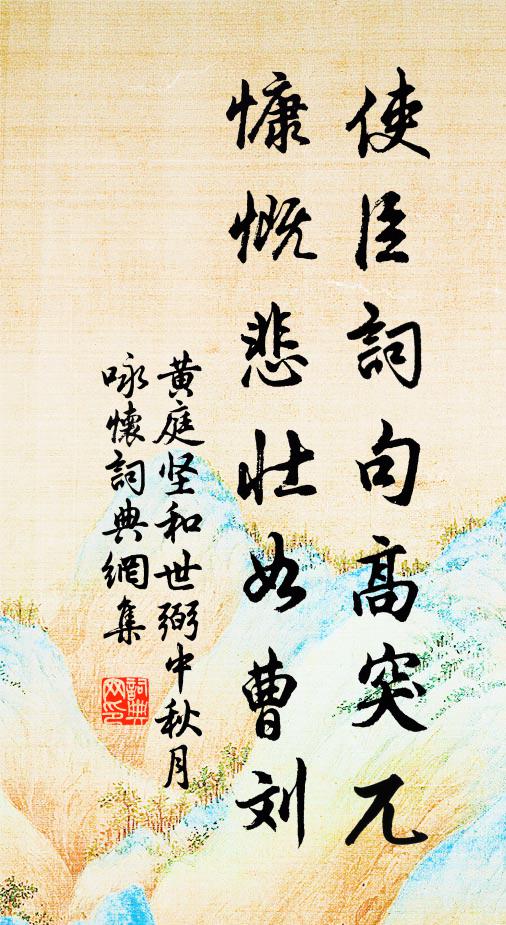 使臣詞句高突兀
慷慨悲壯如曹刘
黄庭坚和世弼中秋月
咏懷詞典網集
詞典
网印